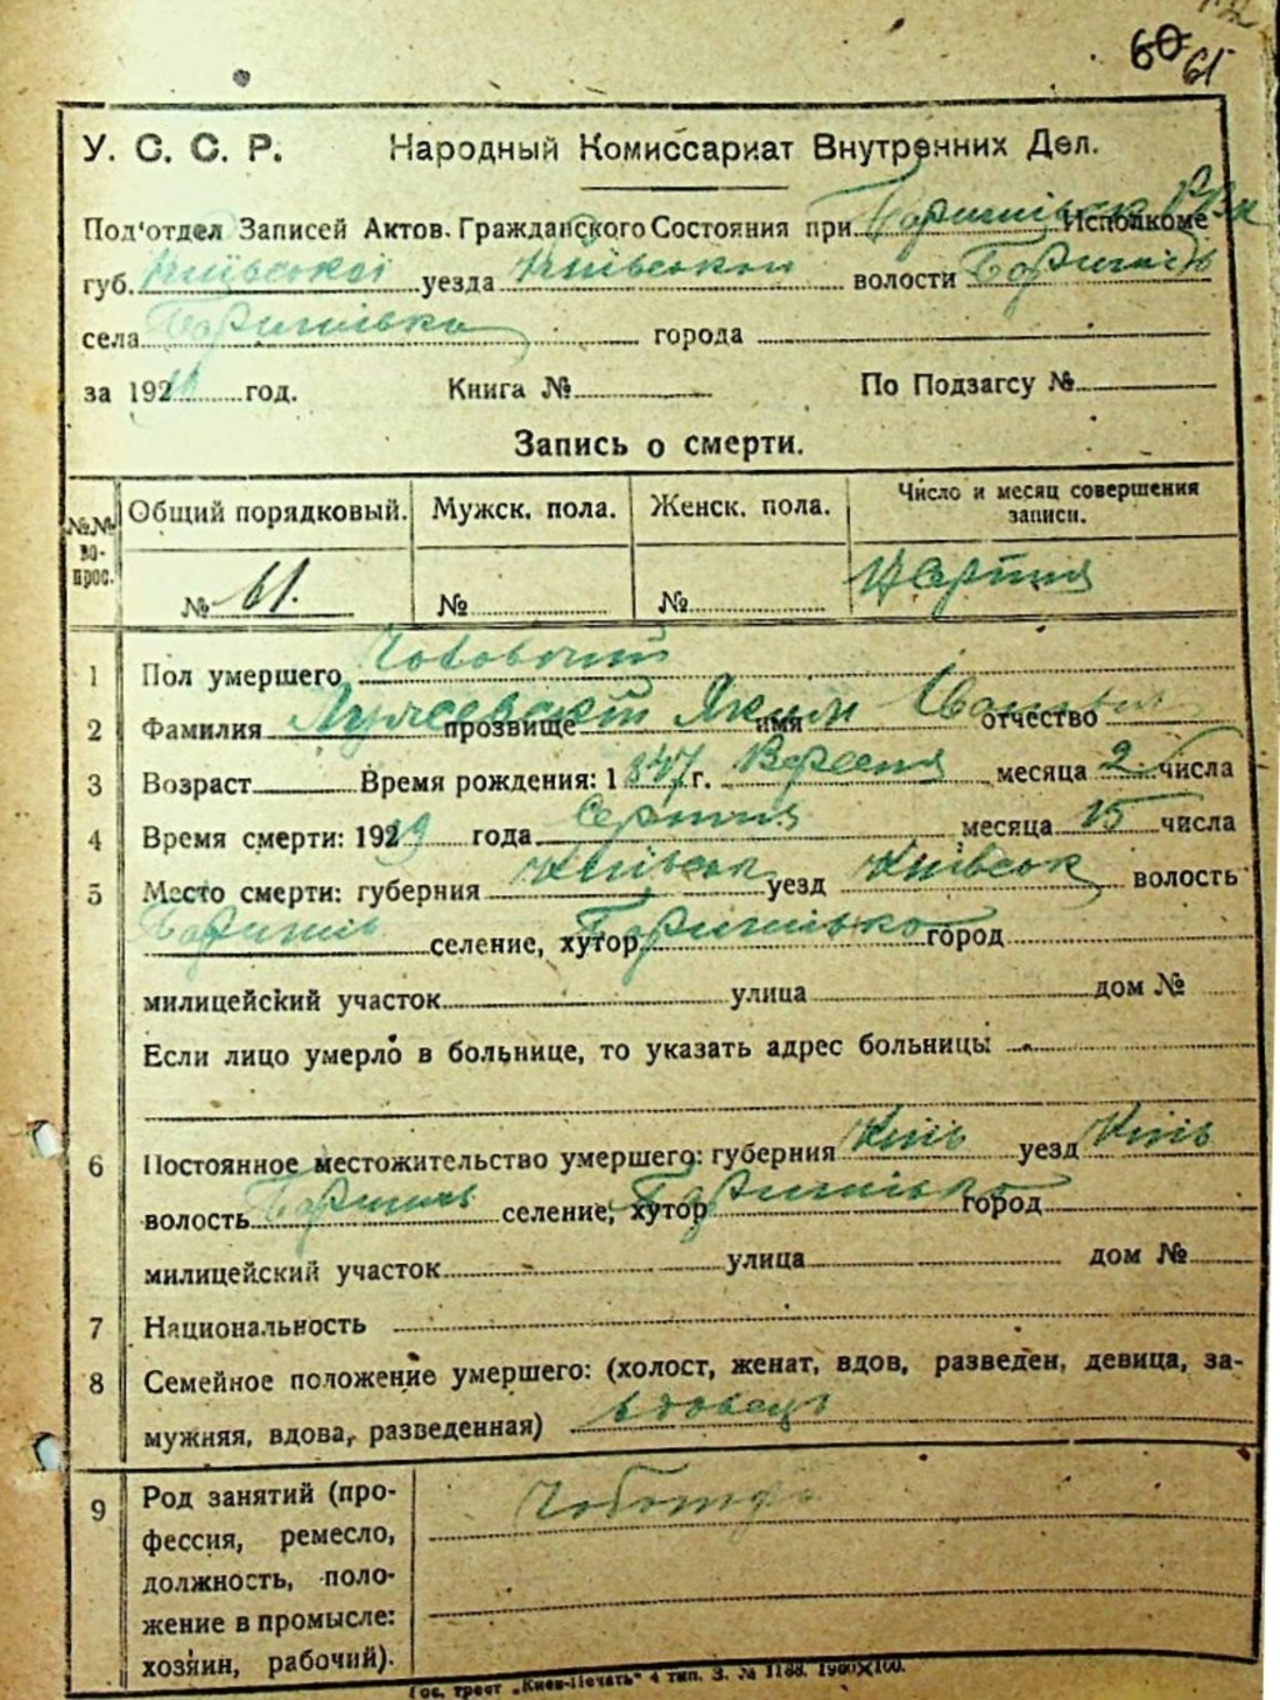 60 61
У. С. С. Р. Народный Комиссариат Внутренних Дел.
Под'отдел Записей Актов Гражданского Состояния при Исполкоме
губ. Київської уезда Київської волости
села города
за 192 год. Книга № По Подзагсу №
Запись о смерти.
№№ во- прос. Общий порядковый. Мужск. пола. Женск. пола. Число и месяц совершения записи.
№ 61. № №
1 Пол умершего Чоловічий
2 Фамилия прозвище Яким имя отчество
3 Возраст Время рождения: 1847 г. Вересня месяца 2 числа
4 Время смерти: 1929 года Серпня месяца 15 числа
5 Место смерти: губерния Київськ уезд Київськ волость
селение, хутор город
милицейский участок улица дом №
Если лицо умерло в больнице, то указать адрес больницы
6 Постоянное местожительство умершего: губерния Київ уезд Київ
волость селение, хутор город
милицейский участок улица дом №
7 Национальность
8 Семейное положение умершего: (холост, женат, вдов, разведен, девица, за-
мужняя, вдова, разведенная) вдовець
9 Род занятий (про- Чоботарь
фессия, ремесло,
должность, поло-
жение в промысле:
хозяин, рабочий).
Гос. трест „Киев-Печать" 4 тип. З. № 1188. 1900×100.